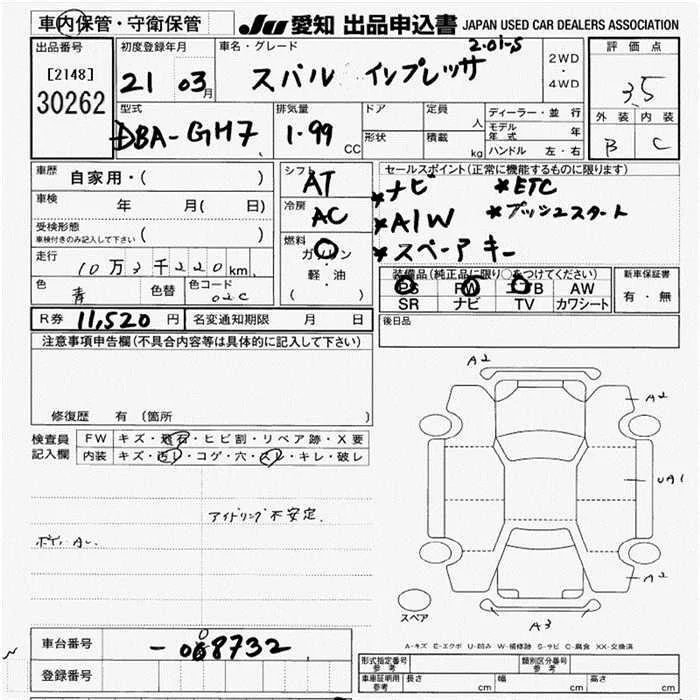 車内保管・守衛保管
JU 愛知 出品申込書 JAPAN USED CAR DEALERS ASSOCIATION
出品番号
[2148]
30262
初度登録年月
21 03月
車名・グレード
2.0i-S
スバル インプレッサ
2WD
・
4WD
評価点
3.5
外装 内装
B C
型式
DBA-GH7
排気量
1.99 CC
ドア
定員 人
形状
積載 kg
ディーラー・並行
モデル年式 年
ハンドル 左・右
車歴 自家用・( )
車検 年 月( 日)
受検形態
車検付きのみ記入して下さい ( )
走行 10万3千220km
色 青 色替 色コード 02C
シフト AT
冷房 AC
燃料
ガソリン
・
軽・油
( )
セールスポイント(正常に機能するものに限ります)
*ナビ *ETC
*AIW *プッシュスタート
*スペーアキー
装備品(純正品に限り○をつけてください)
PS PW エアB AW
SR ナビ TV カワシート
新車保証書
有・無
R券 11,520円 名変通知期限 月 日
後日品
注意事項申告欄(不具合内容等は具体的に記入して下さい)
修復歴 有(箇所
検査員
記入欄
FW キズ・飛石・ヒビ割・リペア跡・X要
内装 キズ・汚レ・コゲ・穴・スレ・キレ・破レ
アイドリング不安定.
A2
A2
UA1
A2
A3
スペア
A-キズ E-エクボ U-凹み W-補修跡 S-サビ C-腐食 XX-交換済
車台番号 -068732
登録番号
形式指定番号
参考
類別区分番号
参考
車庫証明用
参考
長さ cm 幅 cm 高さ cm